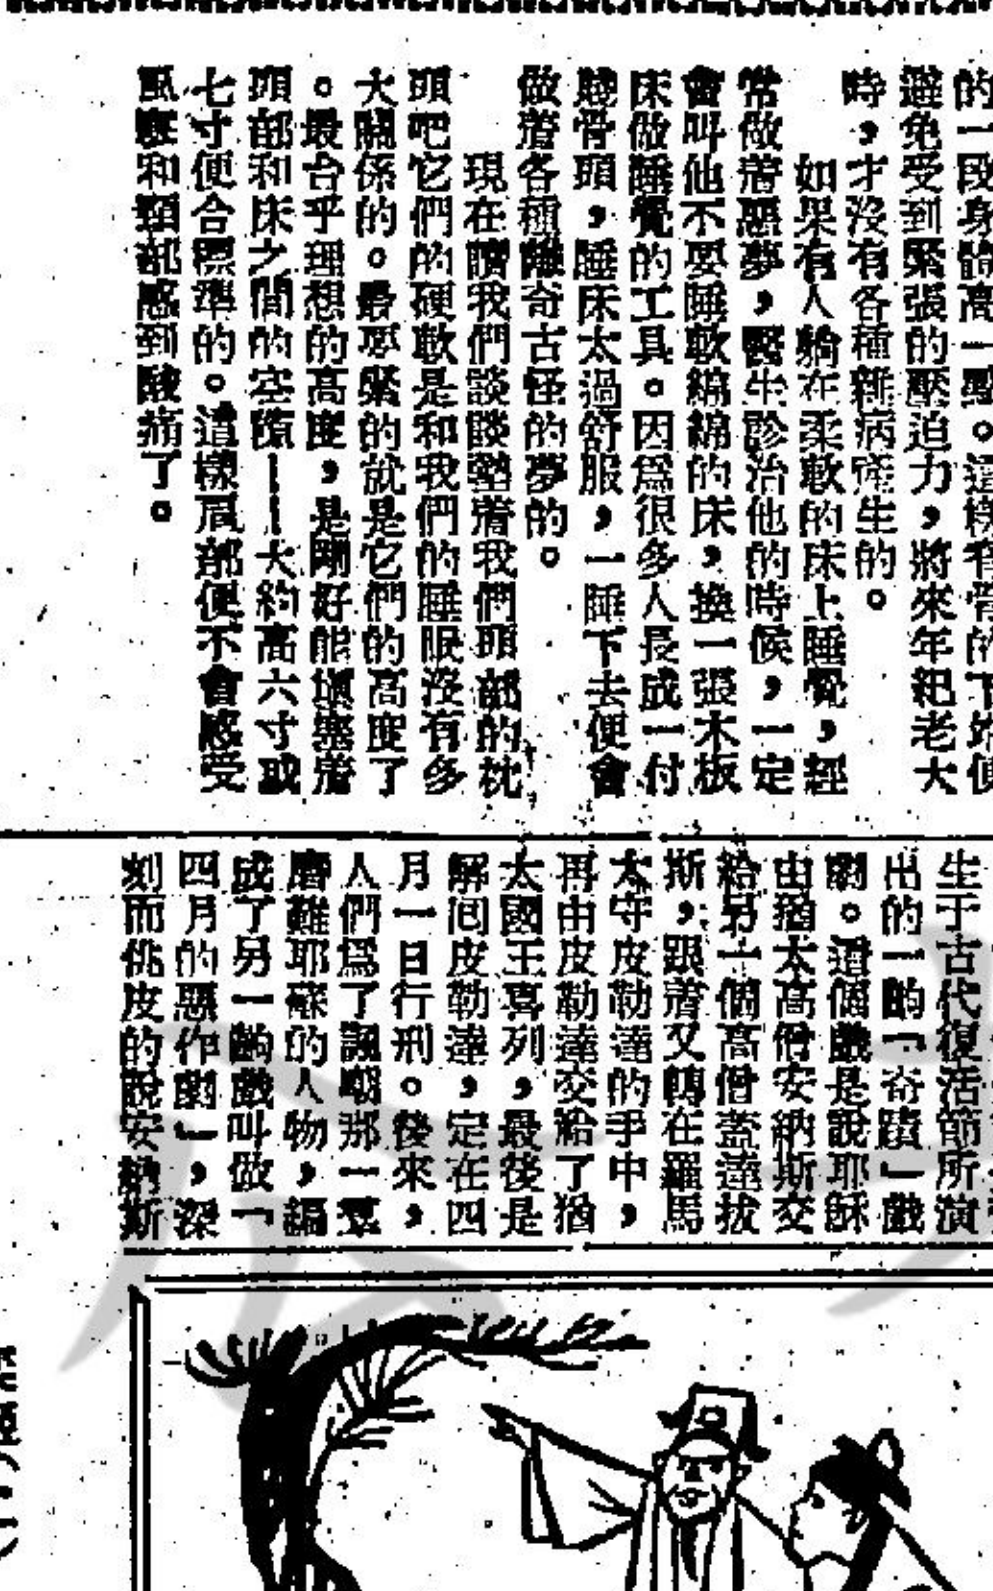 的一段身體高一點。這樣脊骨的下端便
避免受到緊張的壓迫力，將來年紀老大
時，才沒有各種雜病產生的。
如果有人躺在柔軟的床上睡覺，經
常做着惡夢，醫生診治他的時候，一定
會叫他不要睡軟綿綿的床，換一張木板
床做睡覺的工具。因爲很多人長成一付
賤骨頭，睡床太過舒服，一睡下去便會
做着各種離奇古怪的夢的。
現在讓我們談談墊着我們頭部的枕
頭吧它們的硬軟是和我們的睡眠沒有多
大關係的。最要緊的就是它們的高度了
。最合乎理想的高度，是剛好能塡塞着
頭部和床之間的空隙——大約高六寸或
七寸便合標準的。這樣肩部便不會感受
風寒和頸部感到酸痛了。
生于古代復活節所演
出的一齣「奇蹟」戲
劇。這個戲是說耶穌
由猶太高僧安納斯交
給另一個高僧蓋達拔
斯，跟着又轉在羅馬
太守皮勒達的手中，
再由皮勒達交給了猶
太國王喜列，最後是
解囘皮勒達，定在四
月一日行刑。後來，
人們爲了諷嘲那一羣
磨難耶蘇的人物，編
成了另一齣戲叫做「
四月的惡作劇」，深
刻而佻皮的說安納斯